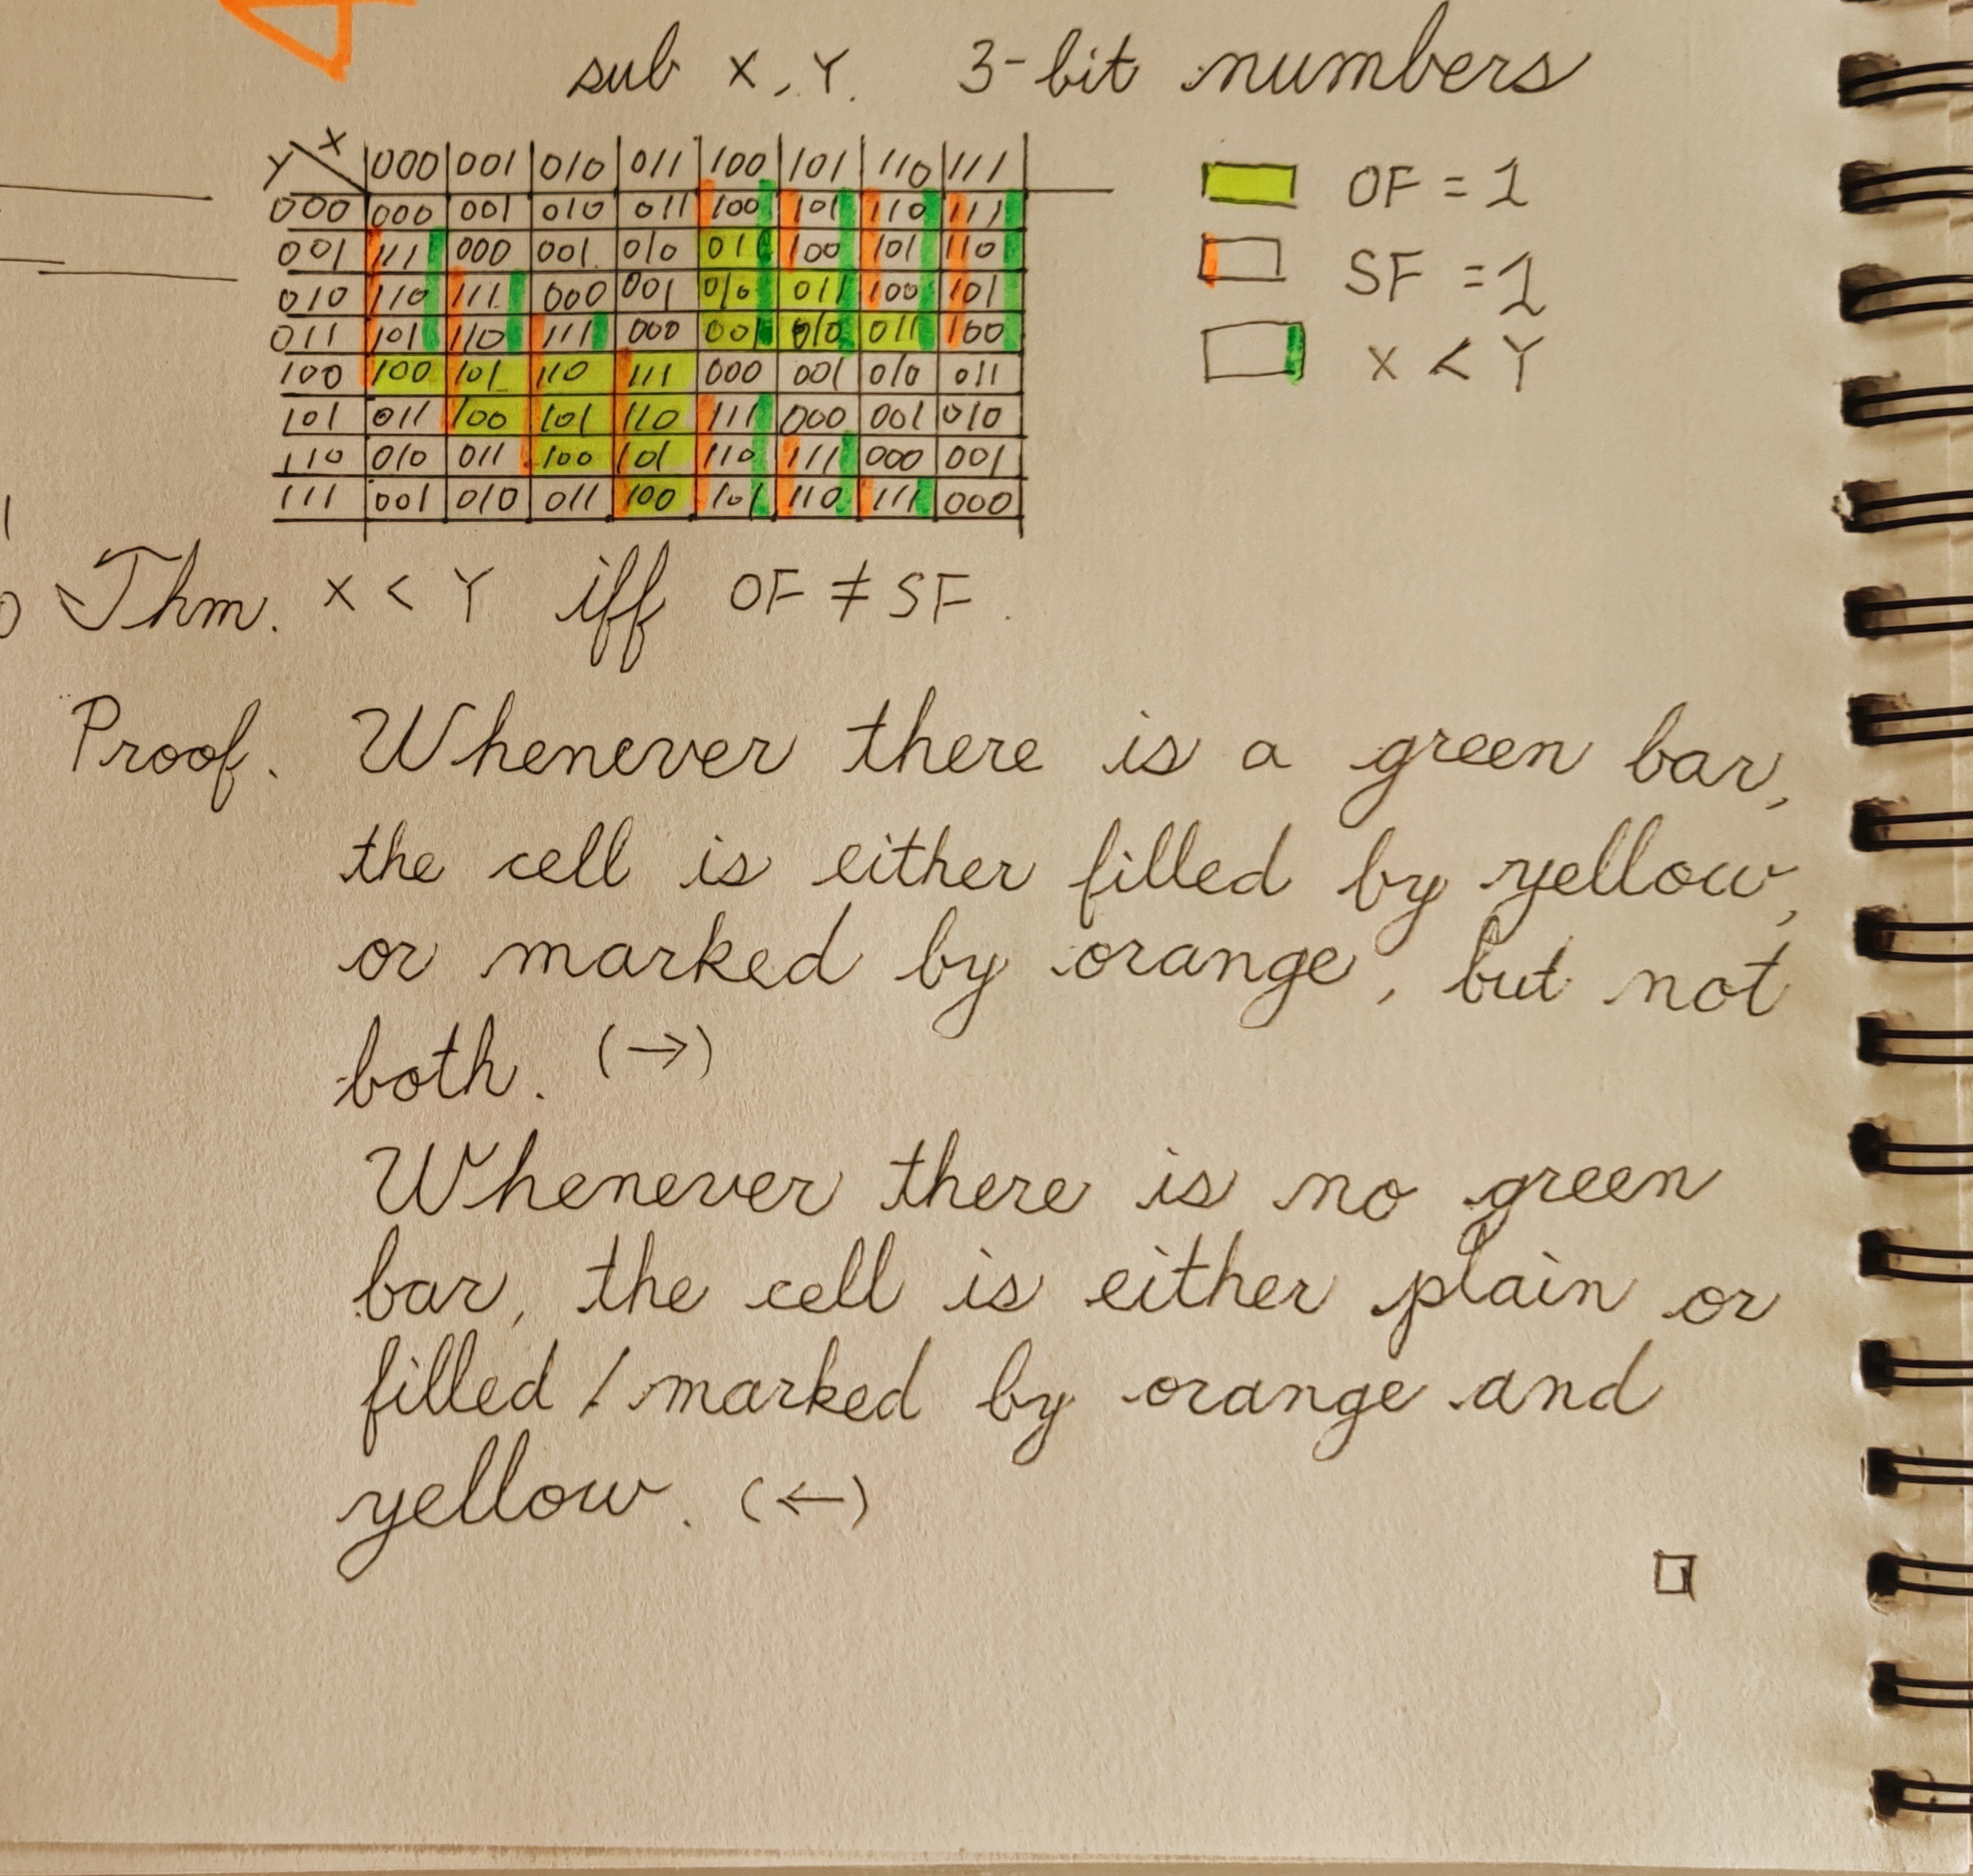 sub X, Y. 3-bit numbers
Y X 000 001 010 011 100 101 110 111
000 000 001 010 011 100 101 110 111
001 111 000 001 010 011 100 101 110
010 110 111 000 001 010 011 100 101
011 101 110 111 000 001 010 011 100
100 100 101 110 111 000 001 010 011
101 011 100 101 110 111 000 001 010
110 010 011 100 101 110 111 000 001
111 001 010 011 100 101 110 111 000
OF = 1
SF = 1
X < Y
Thm. X < Y iff OF ≠ SF.
Proof. Whenever there is a green bar,
the cell is either filled by yellow,
or marked by orange, but not
both. (→)
Whenever there is no green
bar, the cell is either plain or
filled / marked by orange and
yellow. (←)